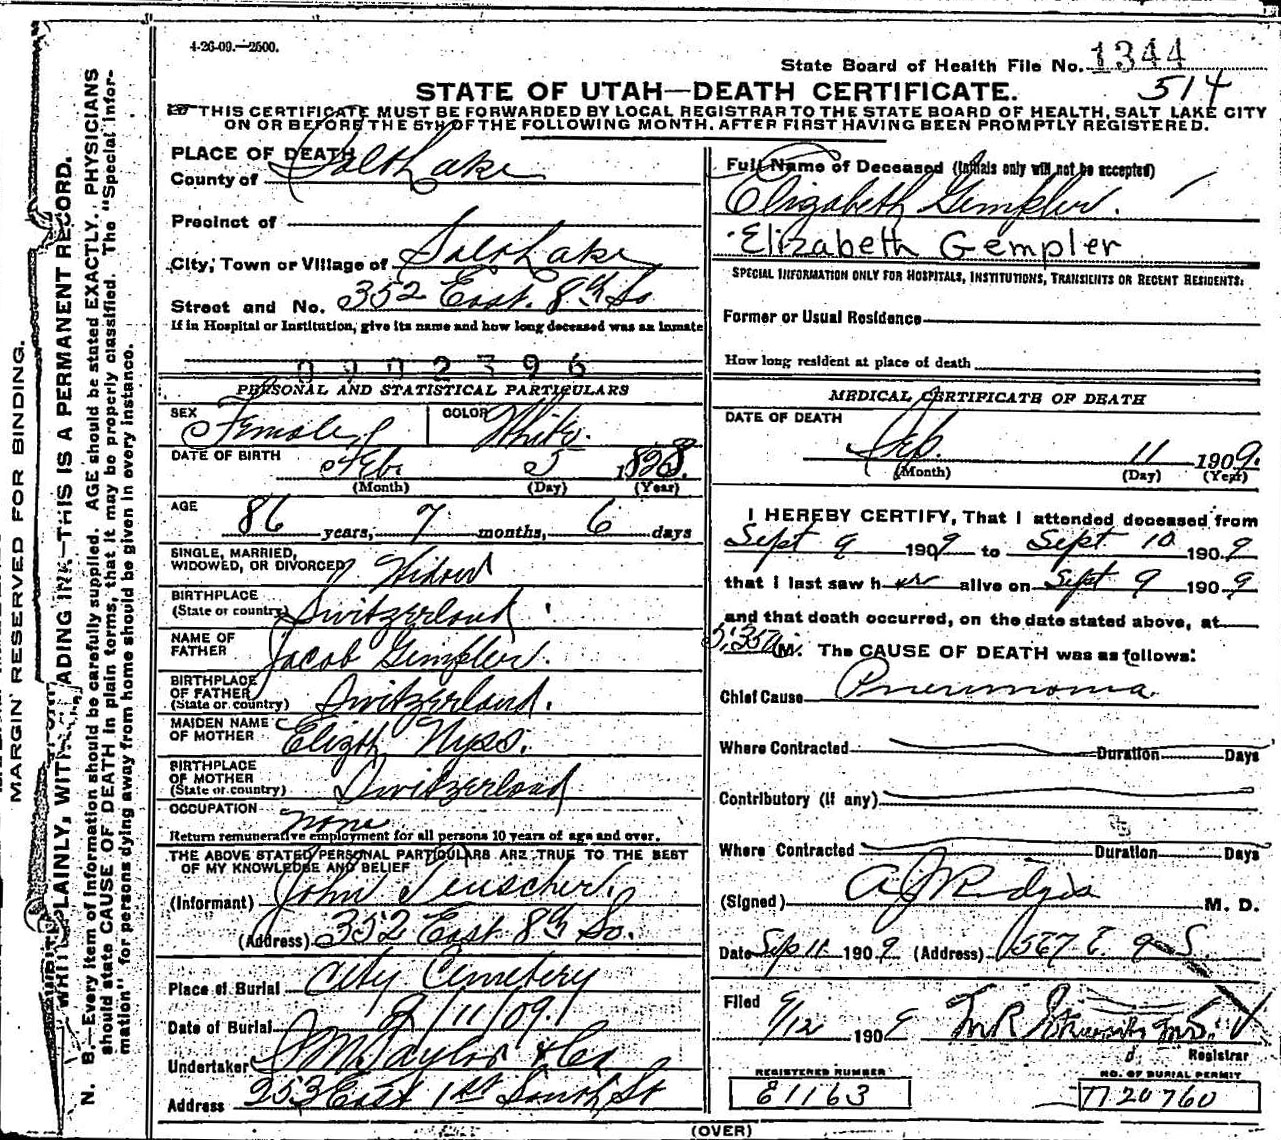 4-26-09.—2500.
State Board of Health File No. 1344
514
STATE OF UTAH—DEATH CERTIFICATE.
THIS CERTIFICATE MUST BE FORWARDED BY LOCAL REGISTRAR TO THE STATE BOARD OF HEALTH, SALT LAKE CITY
ON OR BEFORE THE 5TH OF THE FOLLOWING MONTH, AFTER FIRST HAVING BEEN PROMPTLY REGISTERED.
PLACE OF DEATH
County of Salt Lake
Precinct of
City, Town or Village of Salt Lake
Street and No. 352 East. 8th So
If in Hospital or Institution, give its name and how long deceased was an inmate
0002396
PERSONAL AND STATISTICAL PARTICULARS
SEX Female COLOR White.
DATE OF BIRTH Feb 5 1828.
(Month) (Day) (Year)
AGE
86 years, 7 months, 6 days
SINGLE, MARRIED,
WIDOWED, OR DIVORCED Widow
BIRTHPLACE
(State or country) Switzerland
NAME OF
FATHER Jacob Gempler.
BIRTHPLACE
OF FATHER
(State or country) Switzerland.
MAIDEN NAME
OF MOTHER Elizth Nyss.
BIRTHPLACE
OF MOTHER
(State or country) Switzerland
OCCUPATION none
Return remunerative employment for all persons 10 years of age and over.
THE ABOVE STATED PERSONAL PARTICULARS ARE TRUE TO THE BEST
OF MY KNOWLEDGE AND BELIEF
(Informant) John Teuscher.
(Address) 352 East 8th So.
Place of Burial City Cemetery
Date of Burial 9/11/09.
Undertaker S M Taylor & Co
Address 253 East 1st South St
Full Name of Deceased (Initials only will not be accepted)
Elizabeth Gempler.
Elizabeth Gempler
SPECIAL INFORMATION ONLY FOR HOSPITALS, INSTITUTIONS, TRANSIENTS OR RECENT RESIDENTS:
Former or Usual Residence
How long resident at place of death
MEDICAL CERTIFICATE OF DEATH
DATE OF DEATH
Sep. 11 1909.
(Month) (Day) (Year)
I HEREBY CERTIFY, That I attended deceased from
Sept 9 1909 to Sept. 10 1909
that I last saw her alive on Sept 9 1909
and that death occurred, on the date stated above, at
5:35 a M. The CAUSE OF DEATH was as follows:
Chief Cause Pneumonia
Where Contracted Duration Days
Contributory (if any)
Where Contracted Duration Days
(Signed) M. D.
Date Sep 11 1909 (Address) 567 E. 9 S.
Filed 9/12 1909
Registrar
REGISTERED NUMBER
81163
NO. OF BURIAL PERMIT
20760
(OVER)
MARGIN RESERVED FOR BINDING.
WRITE PLAINLY, WITH ADING INK—THIS IS A PERMANENT RECORD.
N. B.—Every item of information should be carefully supplied. AGE should be stated EXACTLY. PHYSICIANS
should state CAUSE OF DEATH in plain terms, that it may be properly classified. The "Special Infor-
mation" for persons dying away from home should be given in every instance.